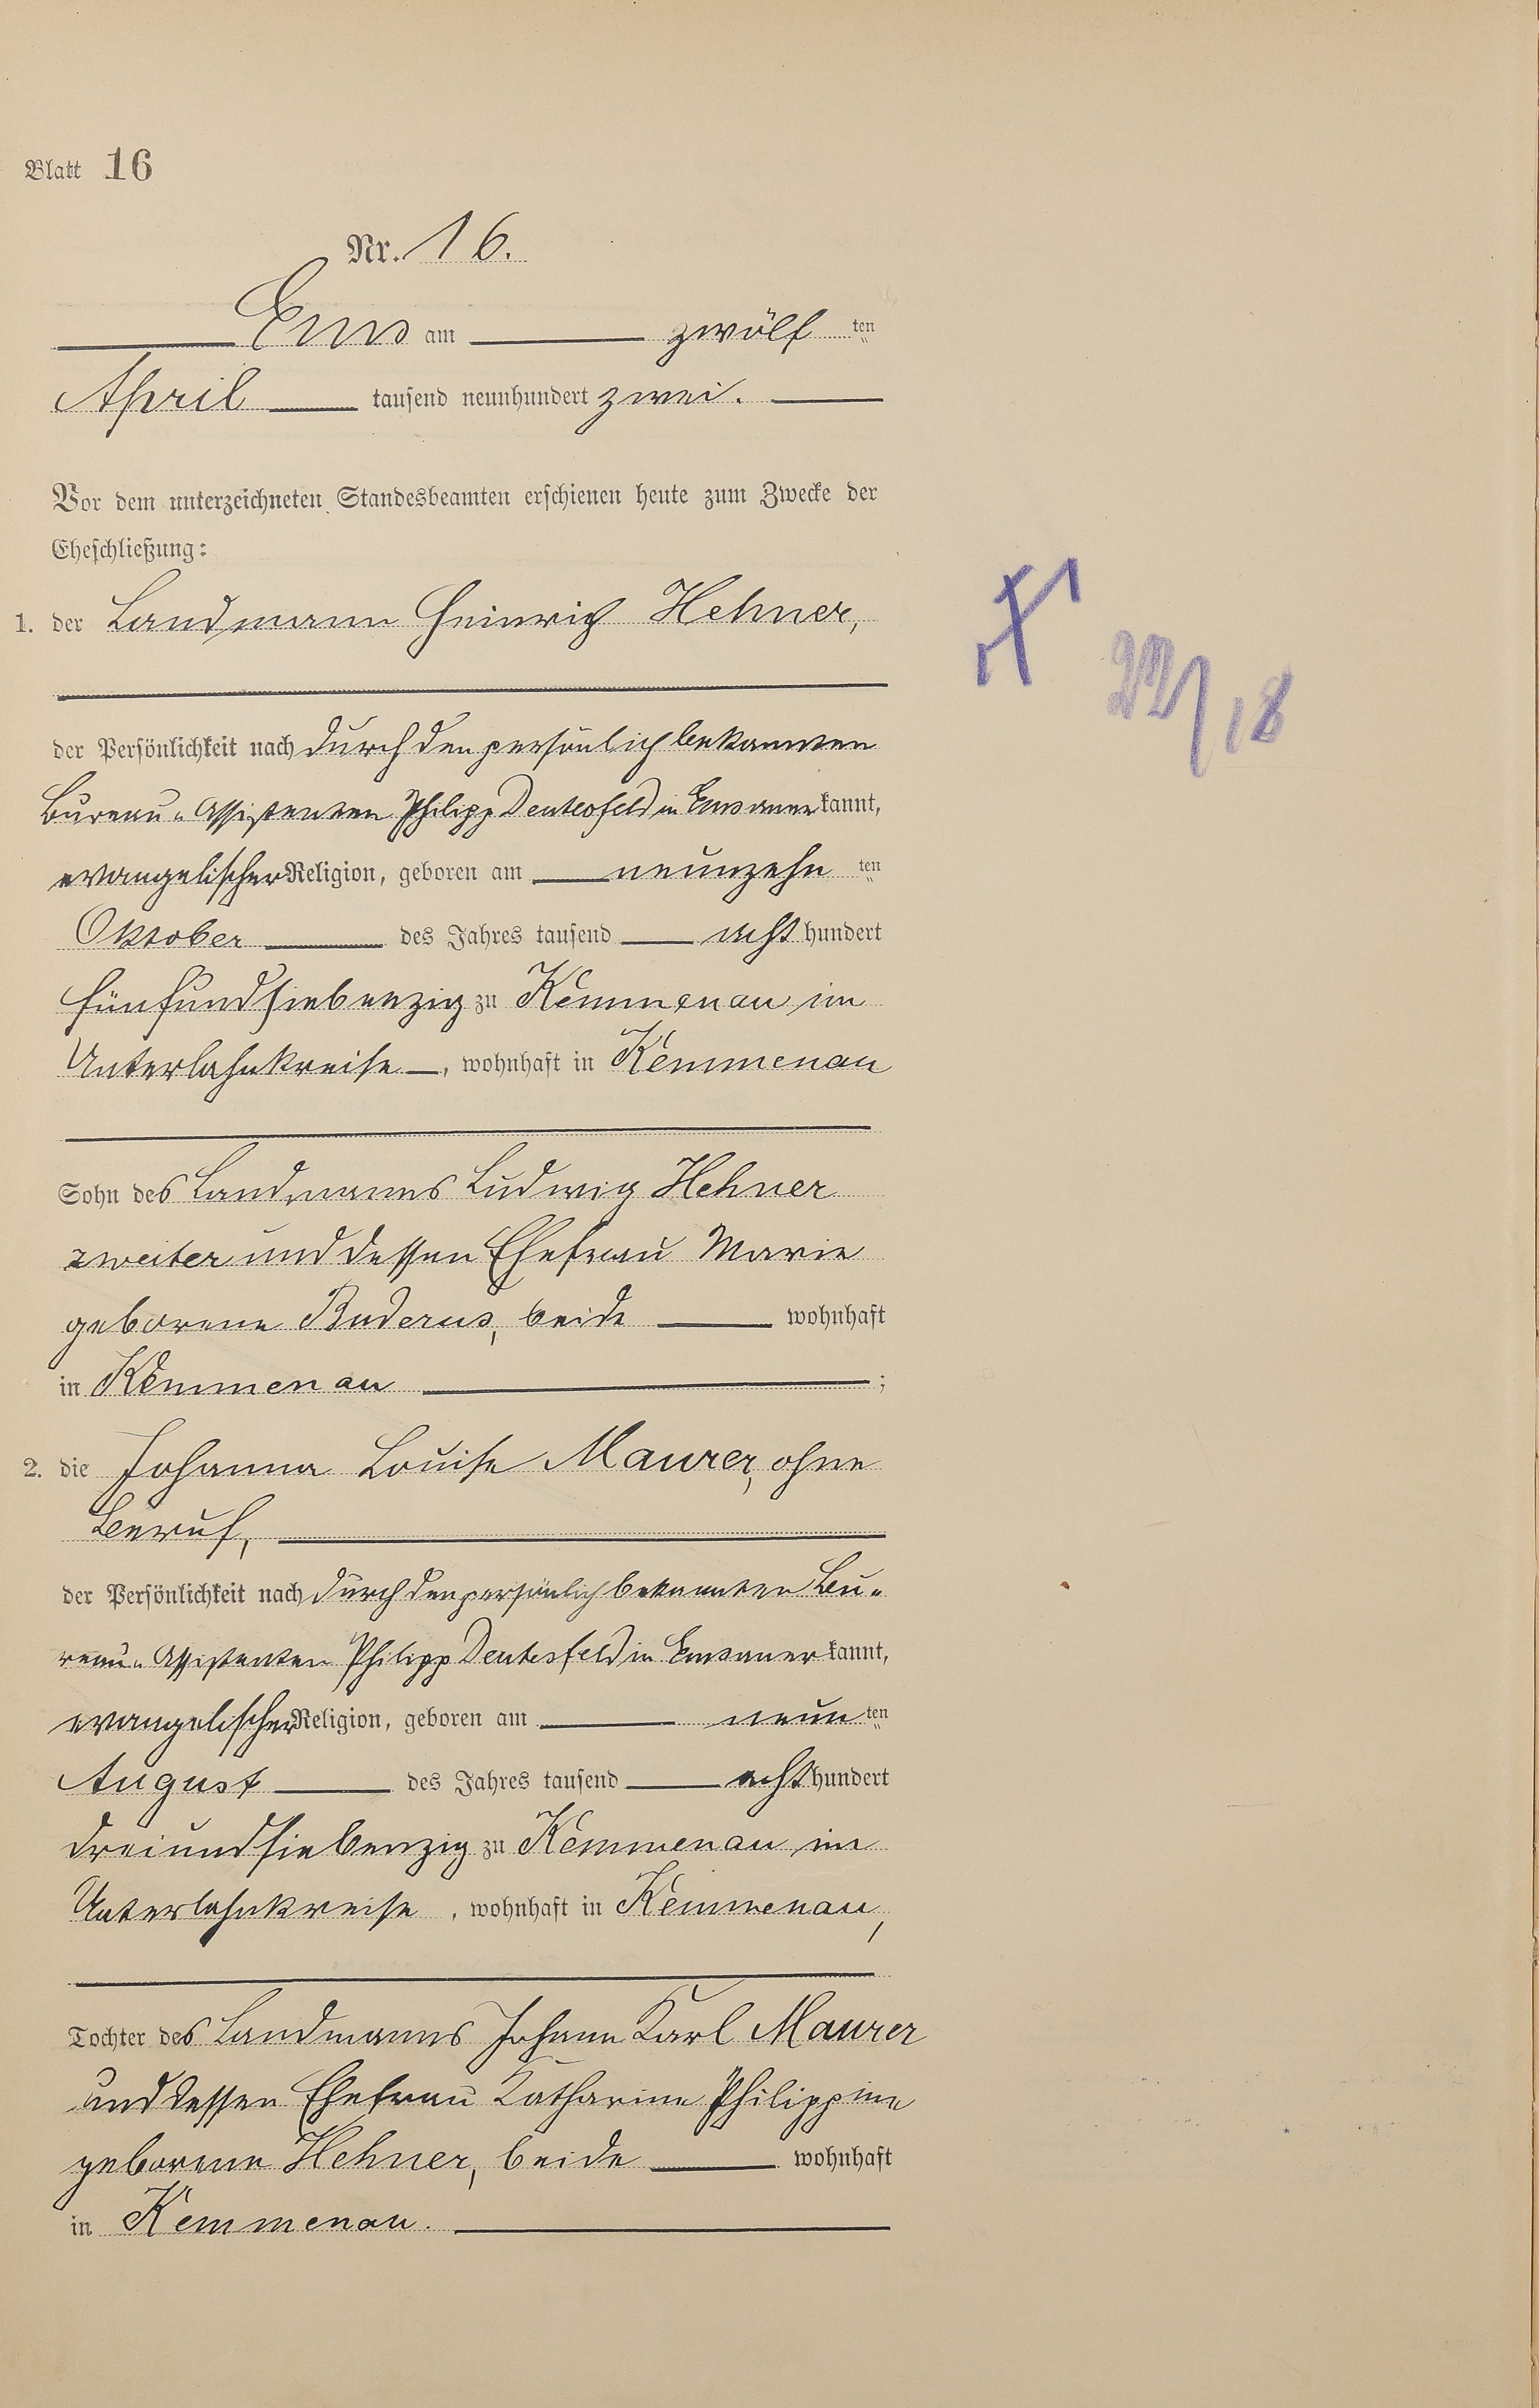 Blatt 16
Nr. 16.
Ems am zwölf ten
April tausend neunhundert zwei.
Vor dem unterzeichneten Standesbeamten erschienen heute zum Zwecke der
Eheschließung:
1. der Landmann Heinrich Hehner,
der Persönlichkeit nach durch den persönlich bekannten
Bureau-Assistenten Philipp in Ems anerkannt,
evangelischer Religion, geboren am neunzehn ten
Oktober des Jahres tausend acht hundert
fünfundsiebenzig zu Kemmenau im
Unterlahnkreise, wohnhaft in Kemmenau
Sohn des Landmanns Ludwig Hehner
zweiter und dessen Ehefrau Marie
geborene Buderus, beide wohnhaft
in Kemmenau ;
2. die Johanna Louise Maurer, ohne
Beruf,
der Persönlichkeit nach durch den persönlich bekannten Bu-
reau-Assistenten Philipp in Ems anerkannt,
evangelischer Religion, geboren am neun ten
August des Jahres tausend acht hundert
dreiundsiebenzig zu Kemmenau im
Unterlahnkreise, wohnhaft in Kemmenau,
Tochter des Landmanns Johann Karl Maurer
und dessen Ehefrau Katharine Philippine
geborene Hehner, beide wohnhaft
in Kemmenau.